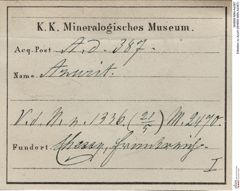 K. K. Mineralogisches Museum.
Acq. Post A. d. 387.
Name. Azurit.
V. d. M. n. 1336. (21/5) M 2170.
Fundort. Chessy, Frankreich
I